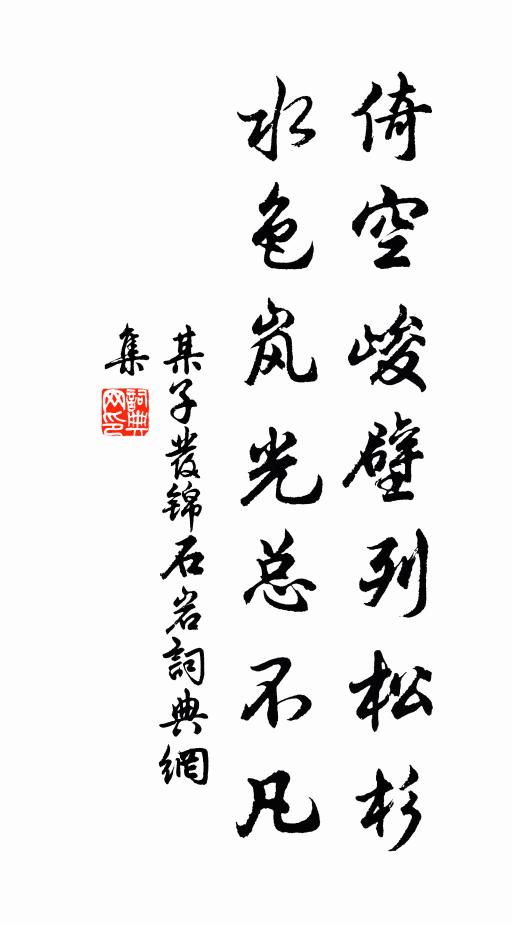 倚空峻壁列松杉
水色岚光总不凡
某子發锦石岩詞典網
集
詞典
网印